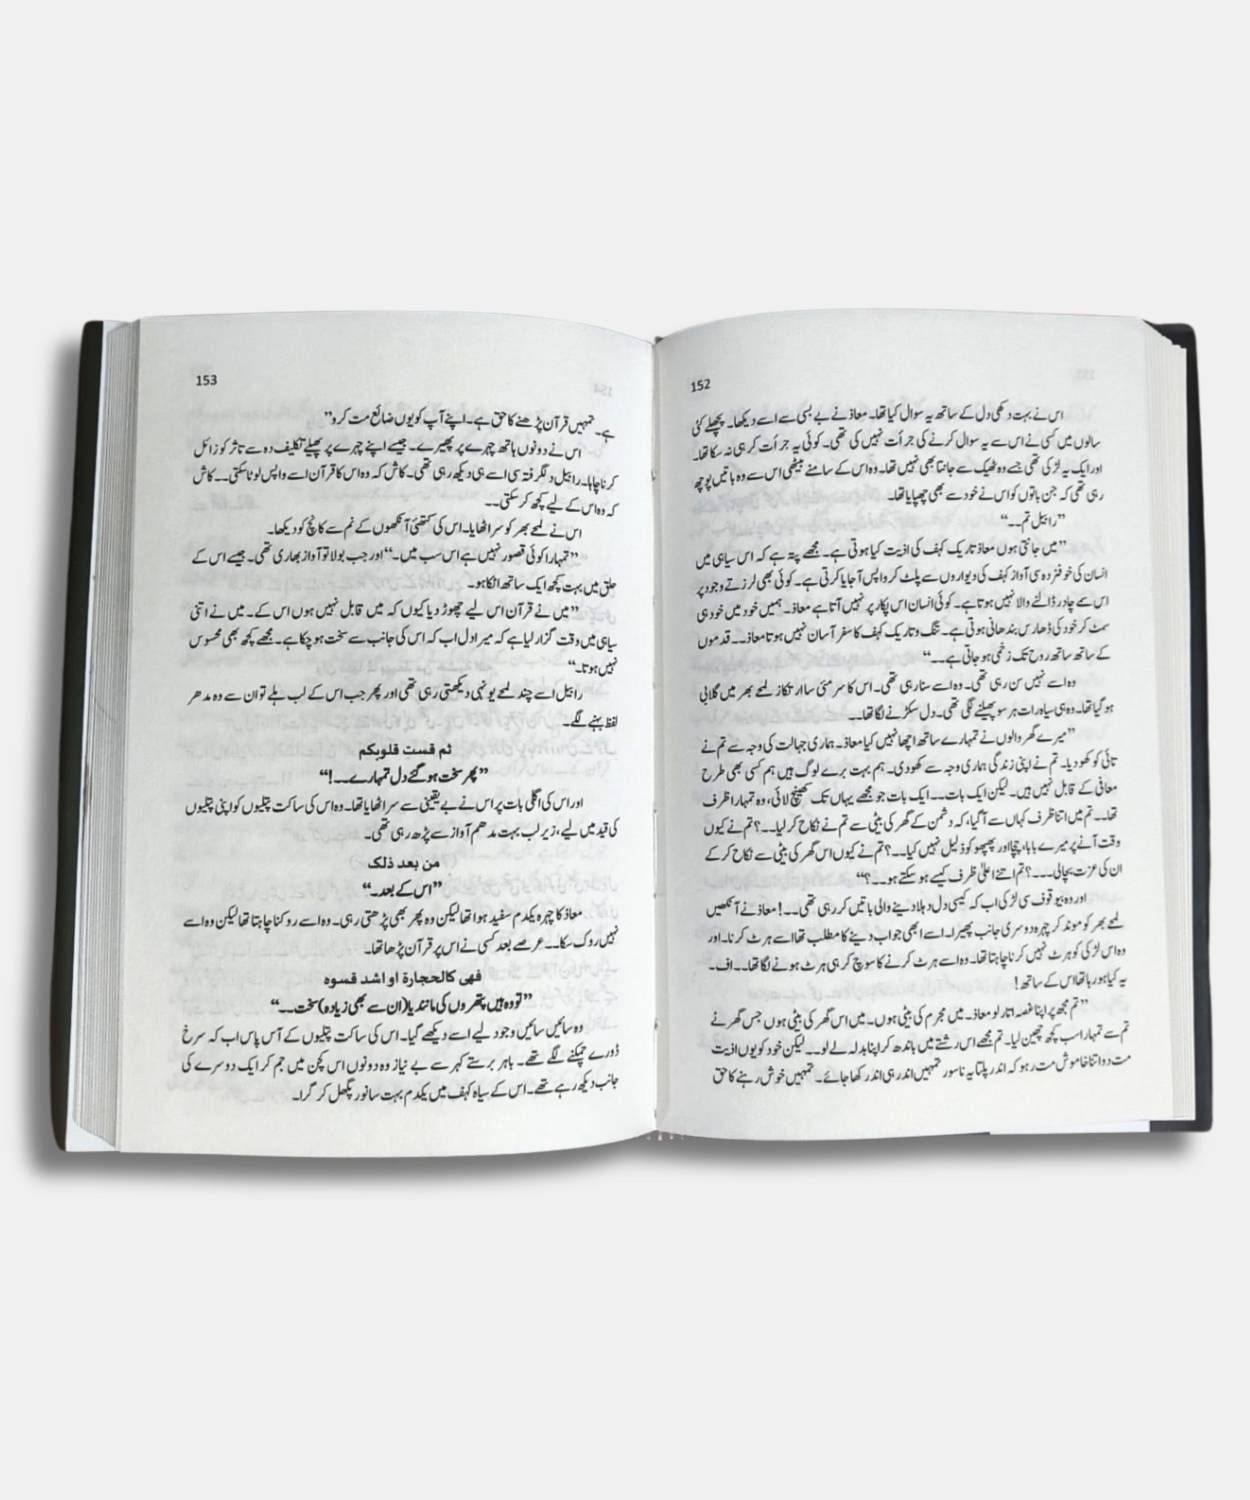 152
اس نے بہت دکھی دل کے ساتھ یہ سوال کیا تھا۔ معاذ نے بے بسی سے اسے دیکھا۔ پچھلے کئی
سالوں میں کسی نے اس سے یہ سوال کرنے کی جرأت نہیں کی تھی۔ کوئی یہ جرأت کر ہی نہ سکا تھا۔
اور ایک یہ لڑکی تھی جسے وہ ٹھیک سے جانتا بھی نہیں تھا۔ وہ اس کے سامنے بیٹھی اس سے وہ باتیں پوچھ
رہی تھی کہ جن باتوں کو اس نے خود سے بھی چھپایا تھا۔
”رابیل تم۔۔“
”میں جانتی ہوں معاذ تاریک کہف کی اذیت کیا ہوتی ہے۔ مجھے پتہ ہے کہ اس سیاہی میں
انسان کی خوفزدہ سی آواز کہف کی دیواروں سے پلٹ کر واپس آجایا کرتی ہے۔ کوئی بھی لرزتے وجود پر
اس سمے چادر ڈالنے والا نہیں ہوتا ہے۔ کوئی انسان اس پکار پر نہیں آتا ہے معاذ۔ ہمیں خود میں خود ہی
سمٹ کر خود کی ڈھارس بندھانی ہوتی ہے۔ تنگ و تاریک کہف کا سفر آسان نہیں ہوتا معاذ۔۔ قدموں
کے ساتھ ساتھ روح تک زخمی ہو جاتی ہے۔۔“
وہ اسے نہیں سن رہی تھی۔ وہ اسے سنا رہی تھی۔ اس کا سرمئی سا ارتکاز لمحے بھر میں گلابی
ہو گیا تھا۔ وہ ہی سیاہ رات ہر سو پھیلنے لگی تھی۔ دل سکڑنے لگا تھا۔۔
”میرے گھر والوں نے تمہارے ساتھ اچھا نہیں کیا معاذ۔ ہماری جہالت کی وجہ سے تم نے
تائی کو کھو دیا۔ تم نے اپنی زندگی ہماری وجہ سے کھودی۔ ہم بہت برے لوگ ہیں ہم کسی بھی طرح
معافی کے قابل نہیں ہیں۔ لیکن ایک بات۔۔ ایک بات جو مجھے یہاں تک کھینچ لائی، وہ تمہارا ظرف
تھا۔۔ تم میں اتنا ظرف کہاں سے آ گیا، کہ دشمن کے گھر کی بیٹی سے تم نے نکاح کر لیا۔۔؟ تم نے کیوں
وقت آنے پر میرے بابا، چچا اور پھپھو کو ذلیل نہیں کیا۔۔؟ تم نے کیوں اس گھر کی بیٹی سے نکاح کر کے
ان کی عزت بچالی۔۔۔؟ تم اتنے اعلیٰ ظرف کیسے ہو سکتے ہو۔۔؟“
اور وہ بیوقوف سی لڑکی اب کہ کیسی دل دہلا دینے والی باتیں کر رہی تھی۔۔! معاذ نے آنکھیں
لمحے بھر کو موند کر چہرہ دوسری جانب پھیرا۔ اسے ابھی جواب دینے کا مطلب تھا اسے ہرٹ کرنا۔ اور
وہ اس لڑکی کو ہرٹ نہیں کرنا چاہتا تھا۔ وہ اسے ہرٹ کرنے کا سوچ کر ہی ہرٹ ہونے لگا تھا۔۔ اف۔
یہ کیا ہو رہا تھا اس کے ساتھ!
”تم مجھ پر اپنا غصہ اتار لو معاذ۔ میں مجرم کی بیٹی ہوں۔ میں اس گھر کی بیٹی ہوں جس گھر نے
تم سے تمہارا سب کچھ چھین لیا۔ تم مجھے اس رشتے میں باندھ کر اپنا بدلہ لے لو۔۔ لیکن خود کو یوں اذیت
مت دو اتنا خاموش مت رہو کہ اندر پلتا یہ ناسور تمہیں اندر ہی اندر کھا جائے۔ تمہیں خوش رہنے کا حق
153
ہے۔ تمہیں قرآن پڑھنے کا حق ہے۔ اپنے آپ کو یوں ضائع مت کرو“
اس نے دونوں ہاتھ چہرے پر پھیرے۔ جیسے اپنے چہرے پر پھیلے تکلیف دہ سے تاثر کو زائل
کرنا چاہا۔ رابیل دلگرفتہ سی اسے ہی دیکھ رہی تھی۔ کاش کہ وہ اس کا قرآن اسے واپس لوٹا سکتی۔۔ کاش
کہ وہ اس کے لیے کچھ کر سکتی۔۔
اس نے لمحے بھر کو سر اٹھایا۔ اس کی کتھئی آنکھوں کے نم سے کانچ کو دیکھا۔
”تمہارا کوئی قصور نہیں ہے اس سب میں۔“ اور جب بولا تو آواز بھاری تھی۔ جیسے اس کے
حلق میں بہت کچھ ایک ساتھ اٹکا ہو۔
”میں نے قرآن اس لیے چھوڑ دیا کیوں کہ میں قابل نہیں ہوں اس کے۔ میں نے اتنی
سیاہی میں وقت گزار لیا ہے کہ میرا دل اب کہ اس کی جانب سے سخت ہو چکا ہے۔ مجھے کچھ بھی محسوس
نہیں ہوتا۔“
رابیل اسے چند لمحے یونہی دیکھتی رہی تھی اور پھر جب اس کے لب ہلے تو ان سے وہ مدھر
لفظ بہنے لگے۔
ثم قست قلوبکم
”پھر سخت ہو گئے دل تمہارے۔۔!“
اور اس کی اگلی بات پر اس نے بے یقینی سے سر اٹھایا تھا۔ وہ اس کی ساکت پتلیوں کو اپنی پتلیوں
کی قید میں لیے، زیر لب بہت مدھم آواز سے پڑھ رہی تھی۔
من بعد ذلک
”اس کے بعد۔“
معاذ کا چہرہ یکدم سفید ہوا تھا لیکن وہ پھر بھی پڑھتی رہی۔ وہ اسے روکنا چاہتا تھا لیکن وہ اسے
نہیں روک سکا۔۔ عرصے بعد کسی نے اس پر قرآن پڑھا تھا۔
فھی کالحجارة او اشد قسوه
”تو وہ ہیں پتھروں کی مانند یا (ان سے بھی زیادہ) سخت۔۔“
وہ سائیں سائیں وجود لیے اسے دیکھے گیا۔ اس کی ساکت پتلیوں کے آس پاس اب کہ سرخ
ڈورے چمکنے لگے تھے۔ باہر برستے کہر سے بے نیاز وہ دونوں اس کچن میں جم کر ایک دوسرے کی
جانب دیکھ رہے تھے۔ اس کے سیاہ کہف میں یکدم بہت سا نور پگھل کر گرا۔